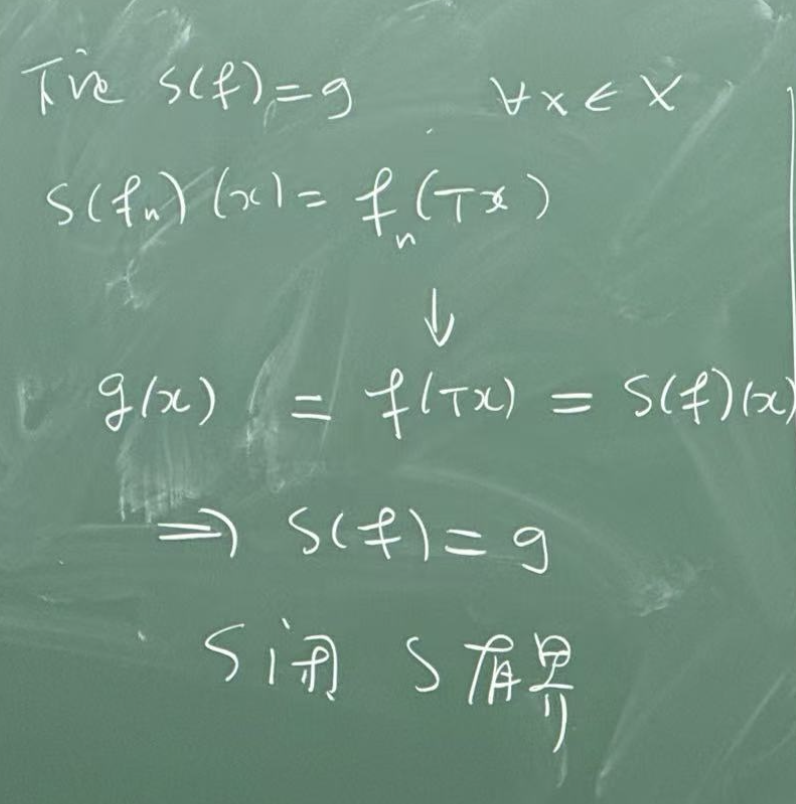 下证 S(f)=g ∀x∈X
S(fₙ)(x)=fₙ(Tx)
↓
g(x) = f(Tx) = S(f)(x)
⇒ S(f)=g
S闭 S有界